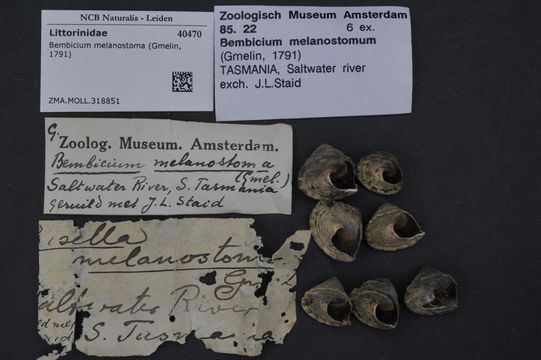 NCB Naturalis - Leiden
Littorinidae 40470
Bembicium melanostoma (Gmelin, 1791)
ZMA.MOLL.318851
Zoologisch Museum Amsterdam
85. 22 6 ex.
Bembicium melanostomum
(Gmelin, 1791)
TASMANIA, Saltwater river
exch. J.L.Staid
G.
Zoolog. Museum. Amsterdam.
Bembicium melanostoma
(Gmel.)
Saltwater River, S. Tasmania
geruild met J. L. Staid
isella
melanostoma
Gm
altwater River
S. Tasmania